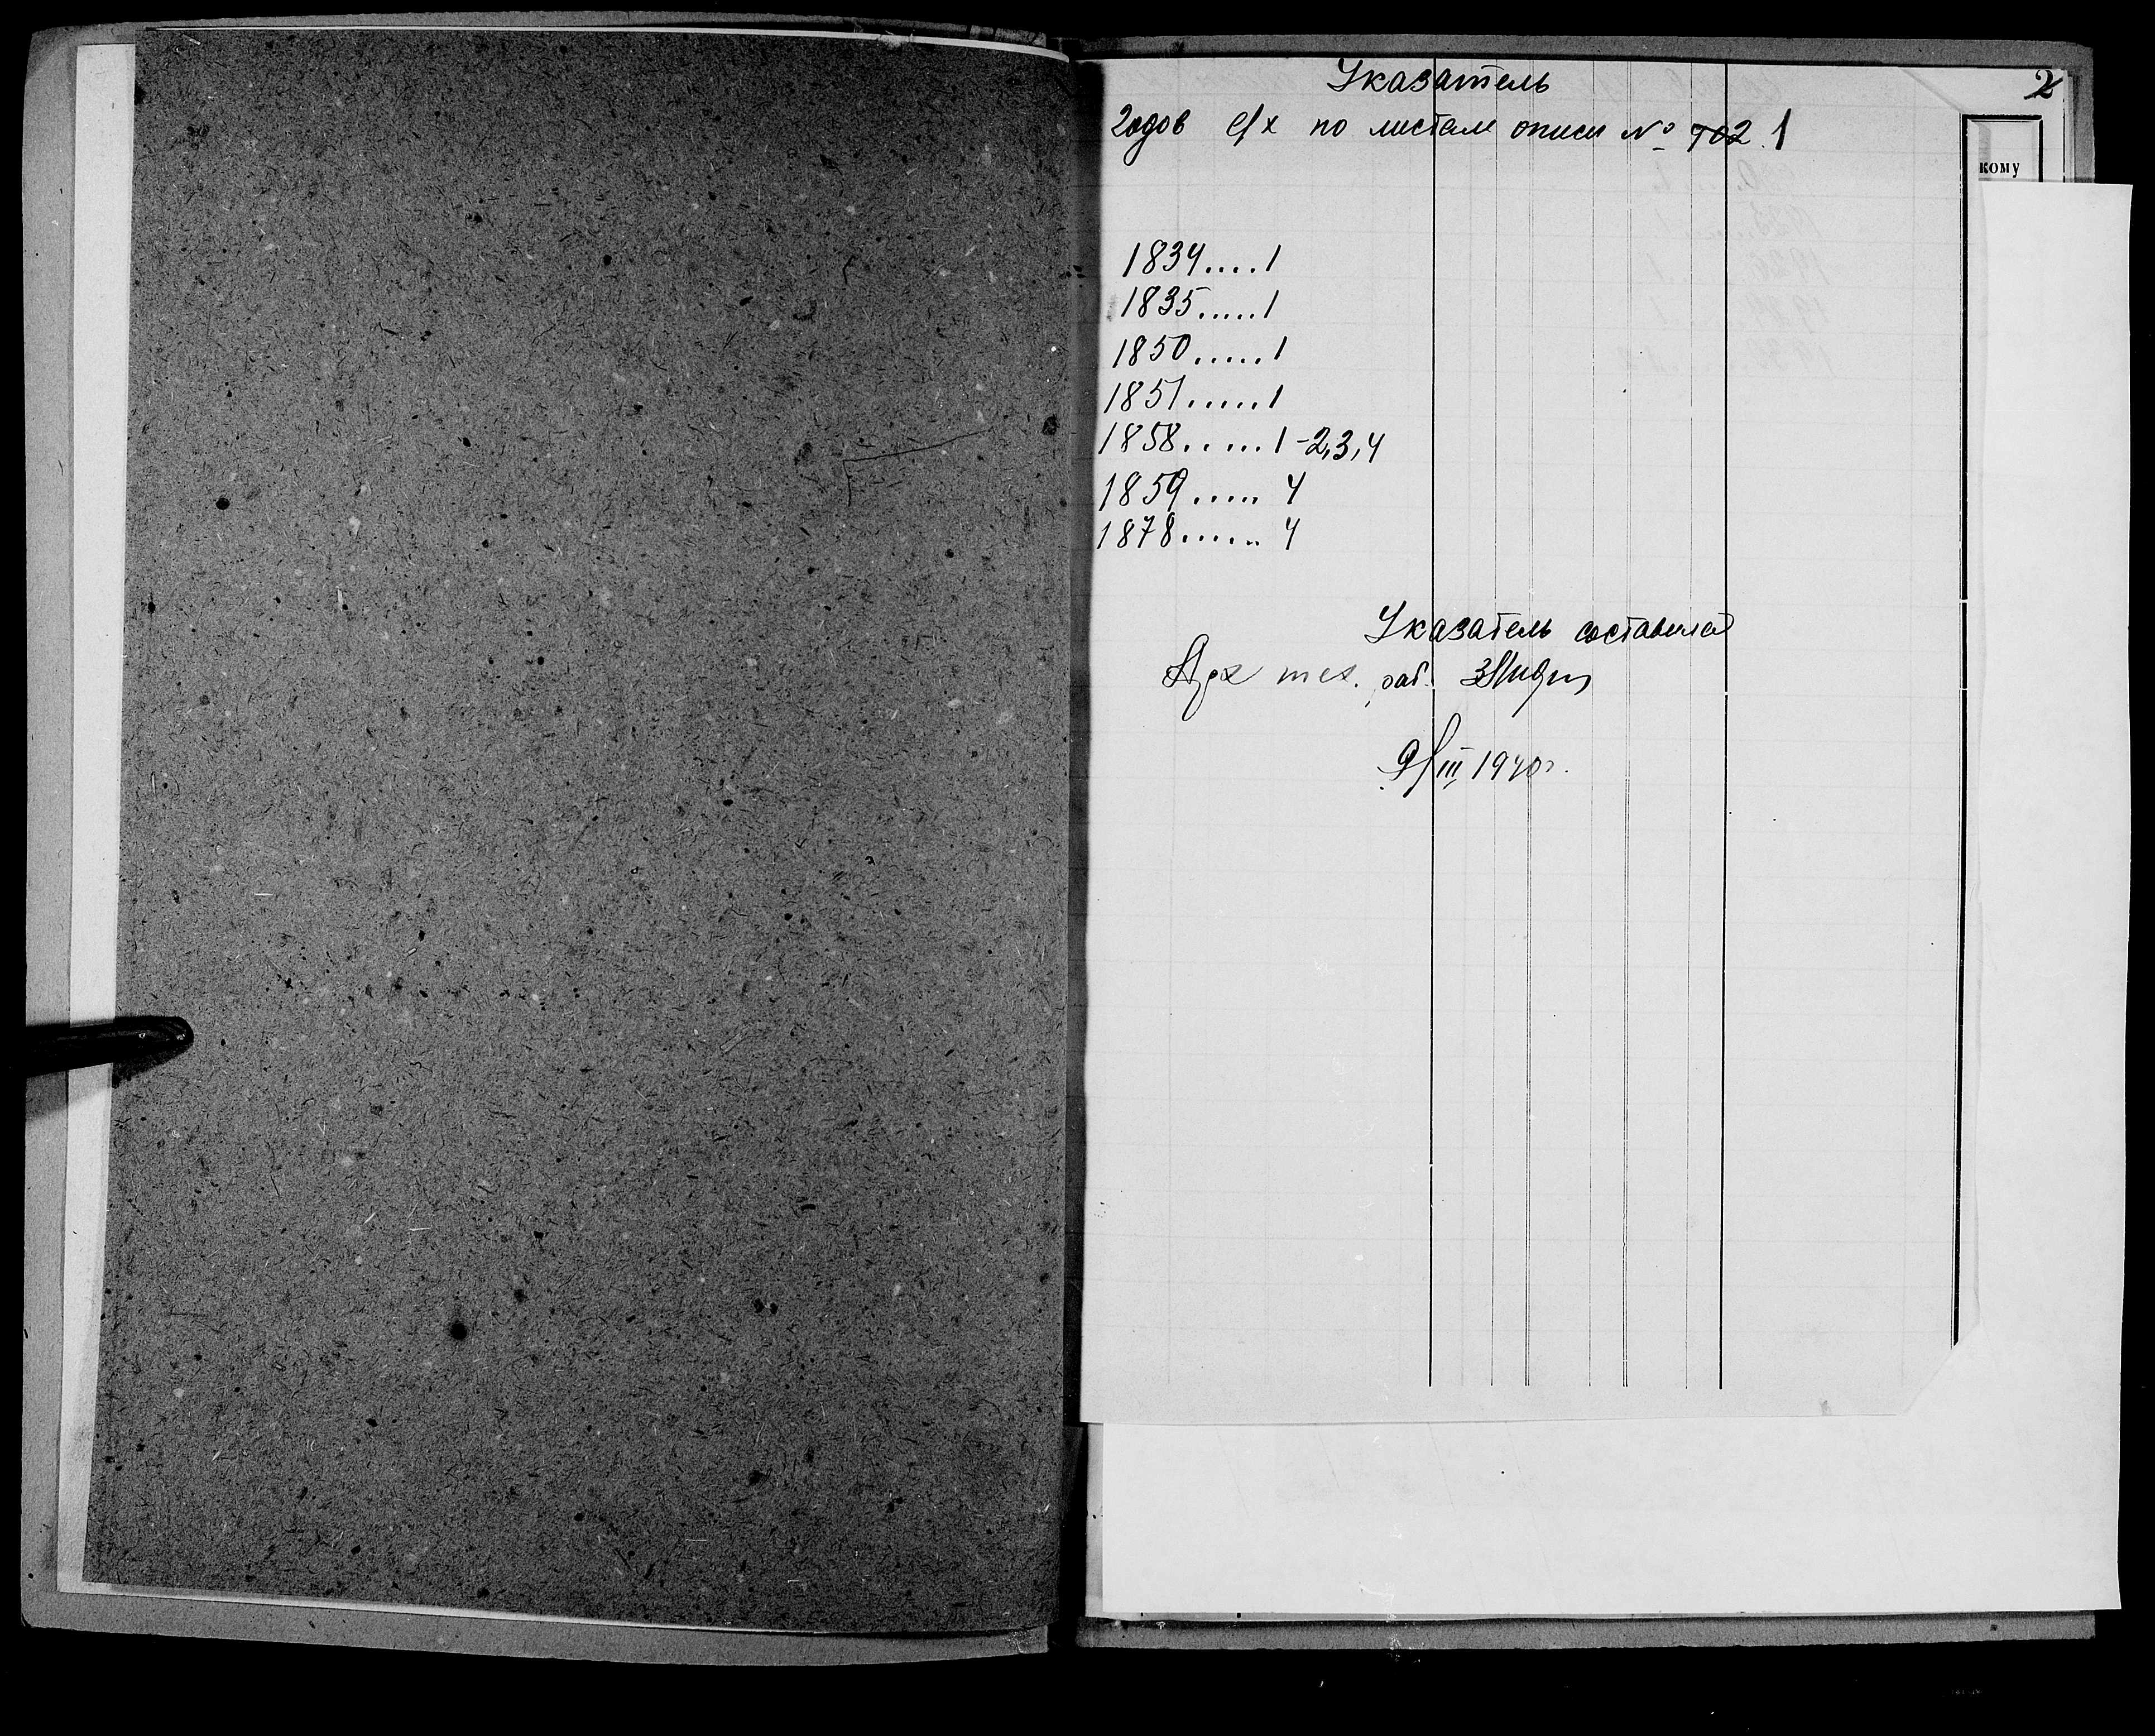 2
Указатель
годов е/х по листам описи № 702 1
кому
1834....1
1835.....1
1850.....1
1851.....1
1858.....1-2,3,4
1859..... 4
1878...... 4
Указатель составила
Арх тех. раб.
9/III 1940г.